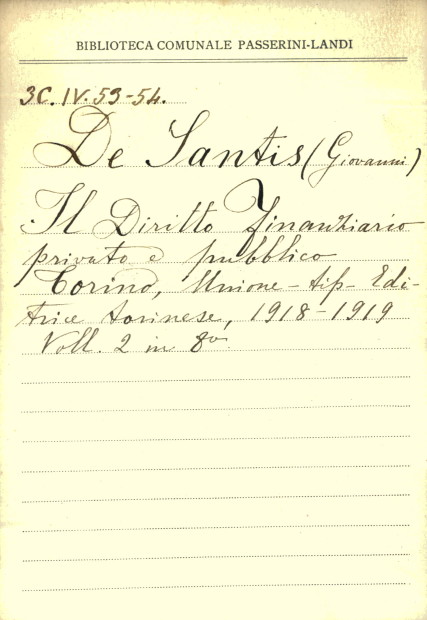 BIBLIOTECA COMUNALE PASSERINI-LANDI
3C. IV. 53-54.
De Santis (Giovanni)
Il Diritto Finanziario
privato e pubblico
Torino, Unione - tip - Edi-
trice torinese, 1918-1919
Voll. 2 in 8º